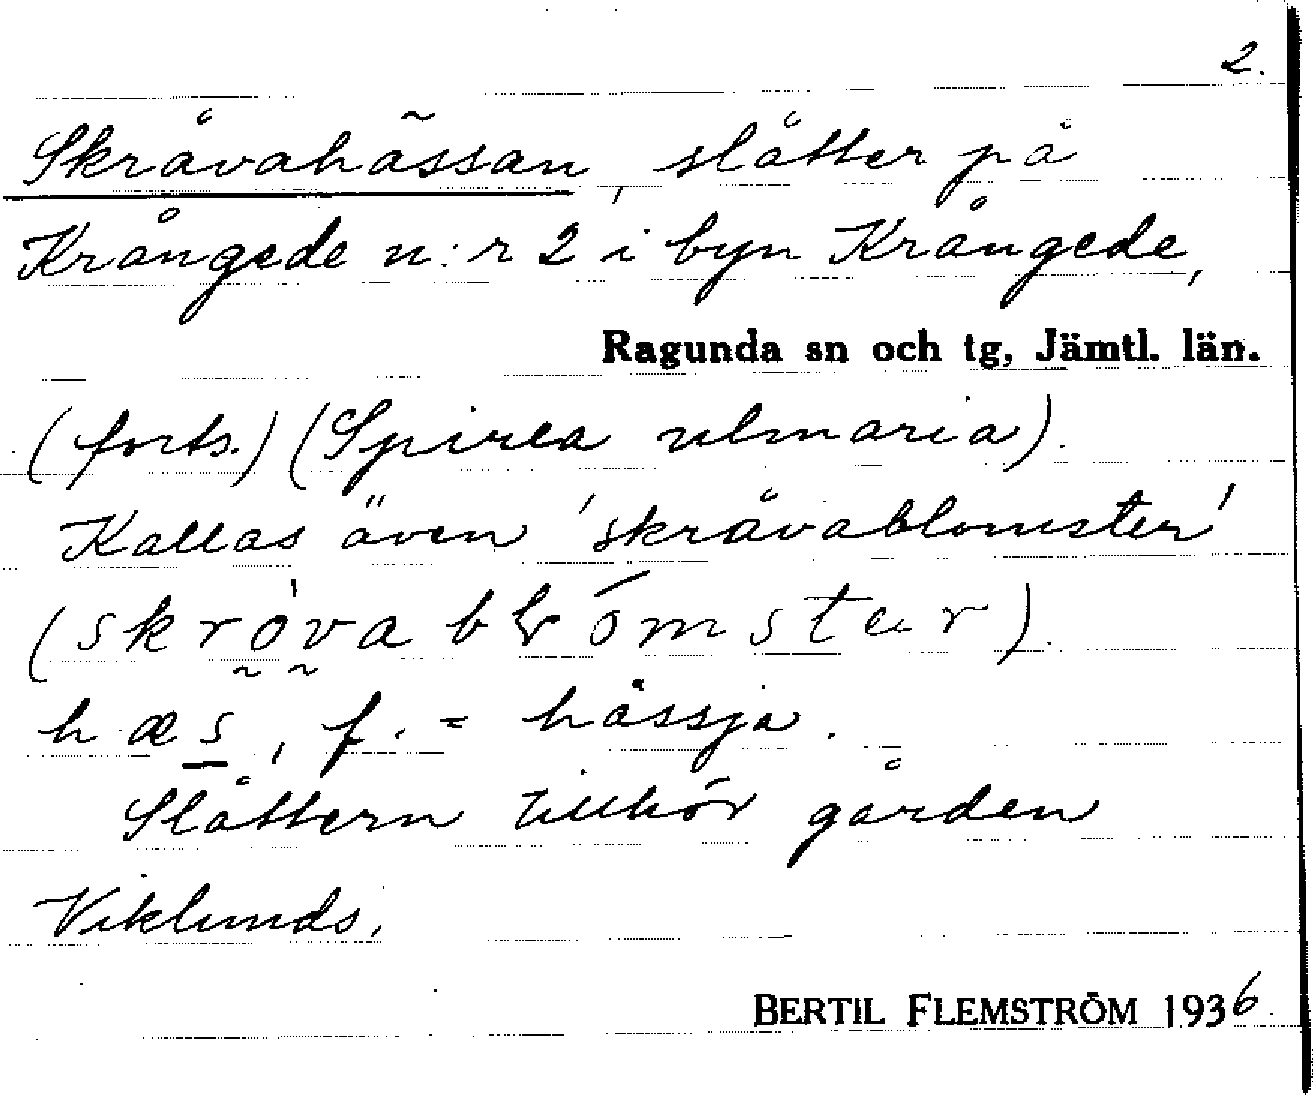 2.
Skråvahässan, slåtter på
Krångede n:r 2 i byn Krångede,
Ragunda sn och tg, Jämtl. län.
(forts.) (Spirea ulmaria).
Kallas även 'skråvablomster'
(skròva blómstər).
hæs, f. = hässja.
Slåttern tillhör gården
Viklunds.
BERTIL FLEMSTRÖM 1936